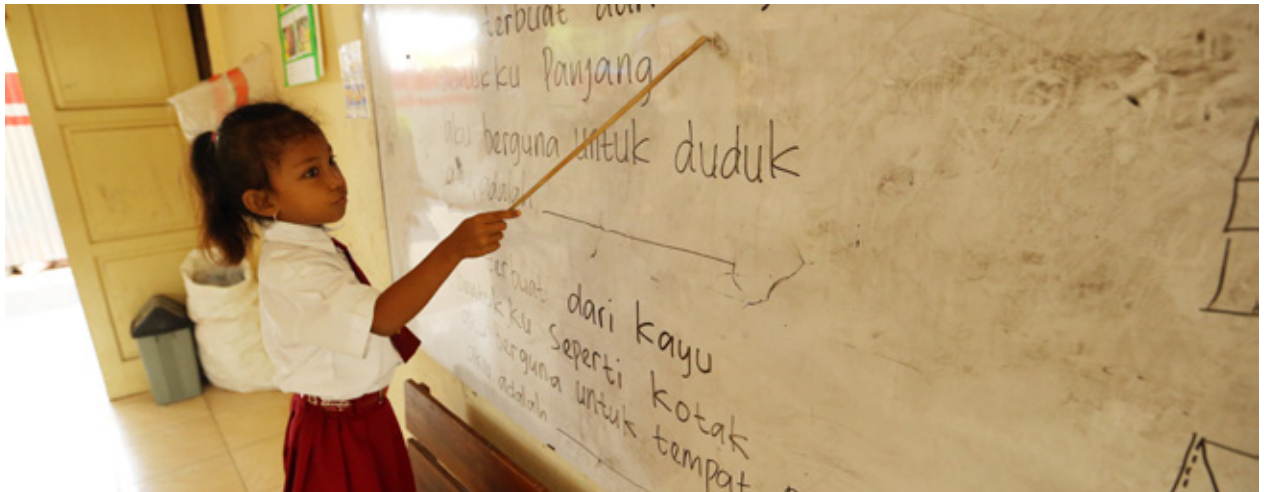 terbuat dari
Panjang
aku berguna untuk duduk
adalah
terbuat dari kayu
bentukku seperti kotak
aku berguna untuk tempat
aku adalah